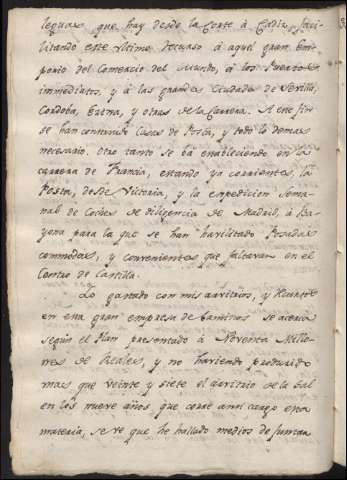 leguas que hay desde la Corte à Cadiz, faci-
litando este ultimo recurso à aquel gran Em-
porio del Comercio del Mundo, à los Puertos
immediatos, y à las grandes Ciudades de Sevilla,
Cordoba, Ezija, y otras de la Carrera. A este fin
se han construido Casas de Posta, y todo lo demas
necesario. Otro tanto se va estableciendo en la
carrera de Francia, estando ya corrientes, la
Posta, desde Victoria, y la expedicion sema-
nal de Coches de diligencia de Madrid, à Ba-
yona para la que se han havilitado Posadas
commodas, y convenientes que faltavan en el
Centro de Castilla.
Lo gastado con mis advitrios, y
en esta gran empresa de Caminos se acerca
segun el Plan presentado à Noventa Millo-
nes de Reales, y no haviendo producido
mas que veinte y siete el advitrio de la Sal
en los nueve años que corre à mi cargo esta
materia, se vè que he hallado medios de